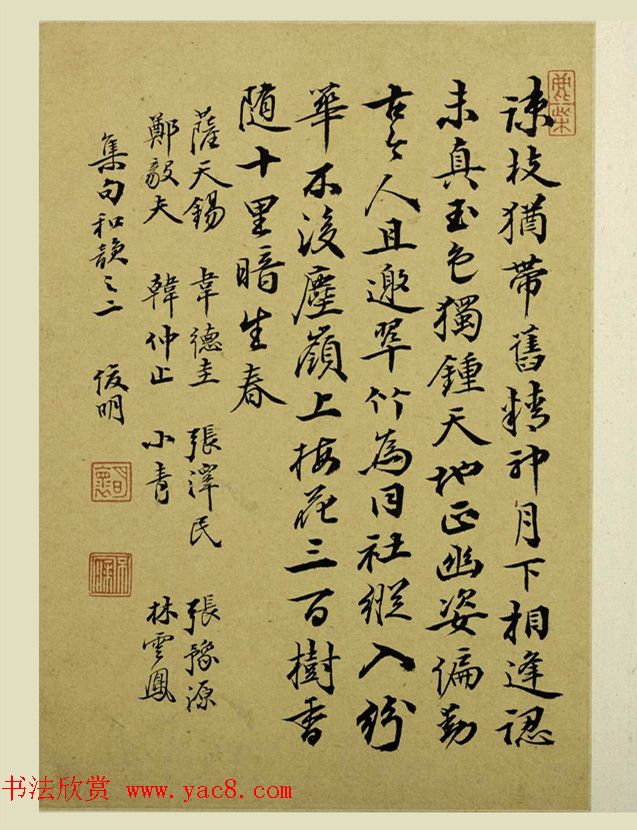 鹿柴
踈枝猶帶舊精神月下相逢認
未真玉色獨鍾天地正幽姿偏動
古今人且邀翠竹為同社縱入紛
華不塵嶺上梅花三百樹香
随十里暗生春
薩天錫 韋德圭 張澤民 張豫源
鄭毅夫 韓仲止 小青 林雲鳳
集句和韻之二 俊明
书法欣赏 www.yac8.com